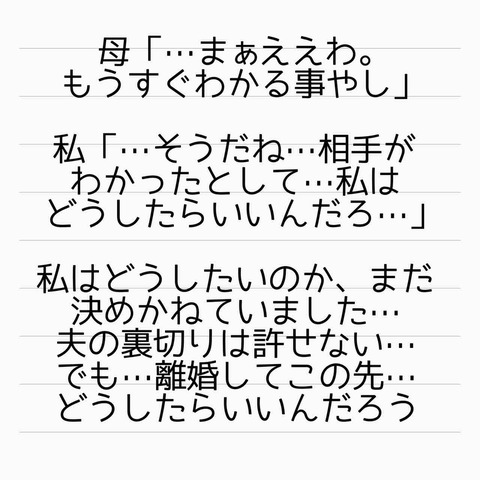 母「…まぁええわ。
もうすぐわかる事やし」
私「…そうだね…相手が
わかったとして…私は
どうしたらいいんだろ…」
私はどうしたいのか、まだ
決めかねていました…
夫の裏切りは許せない…
でも…離婚してこの先…
どうしたらいいんだろう